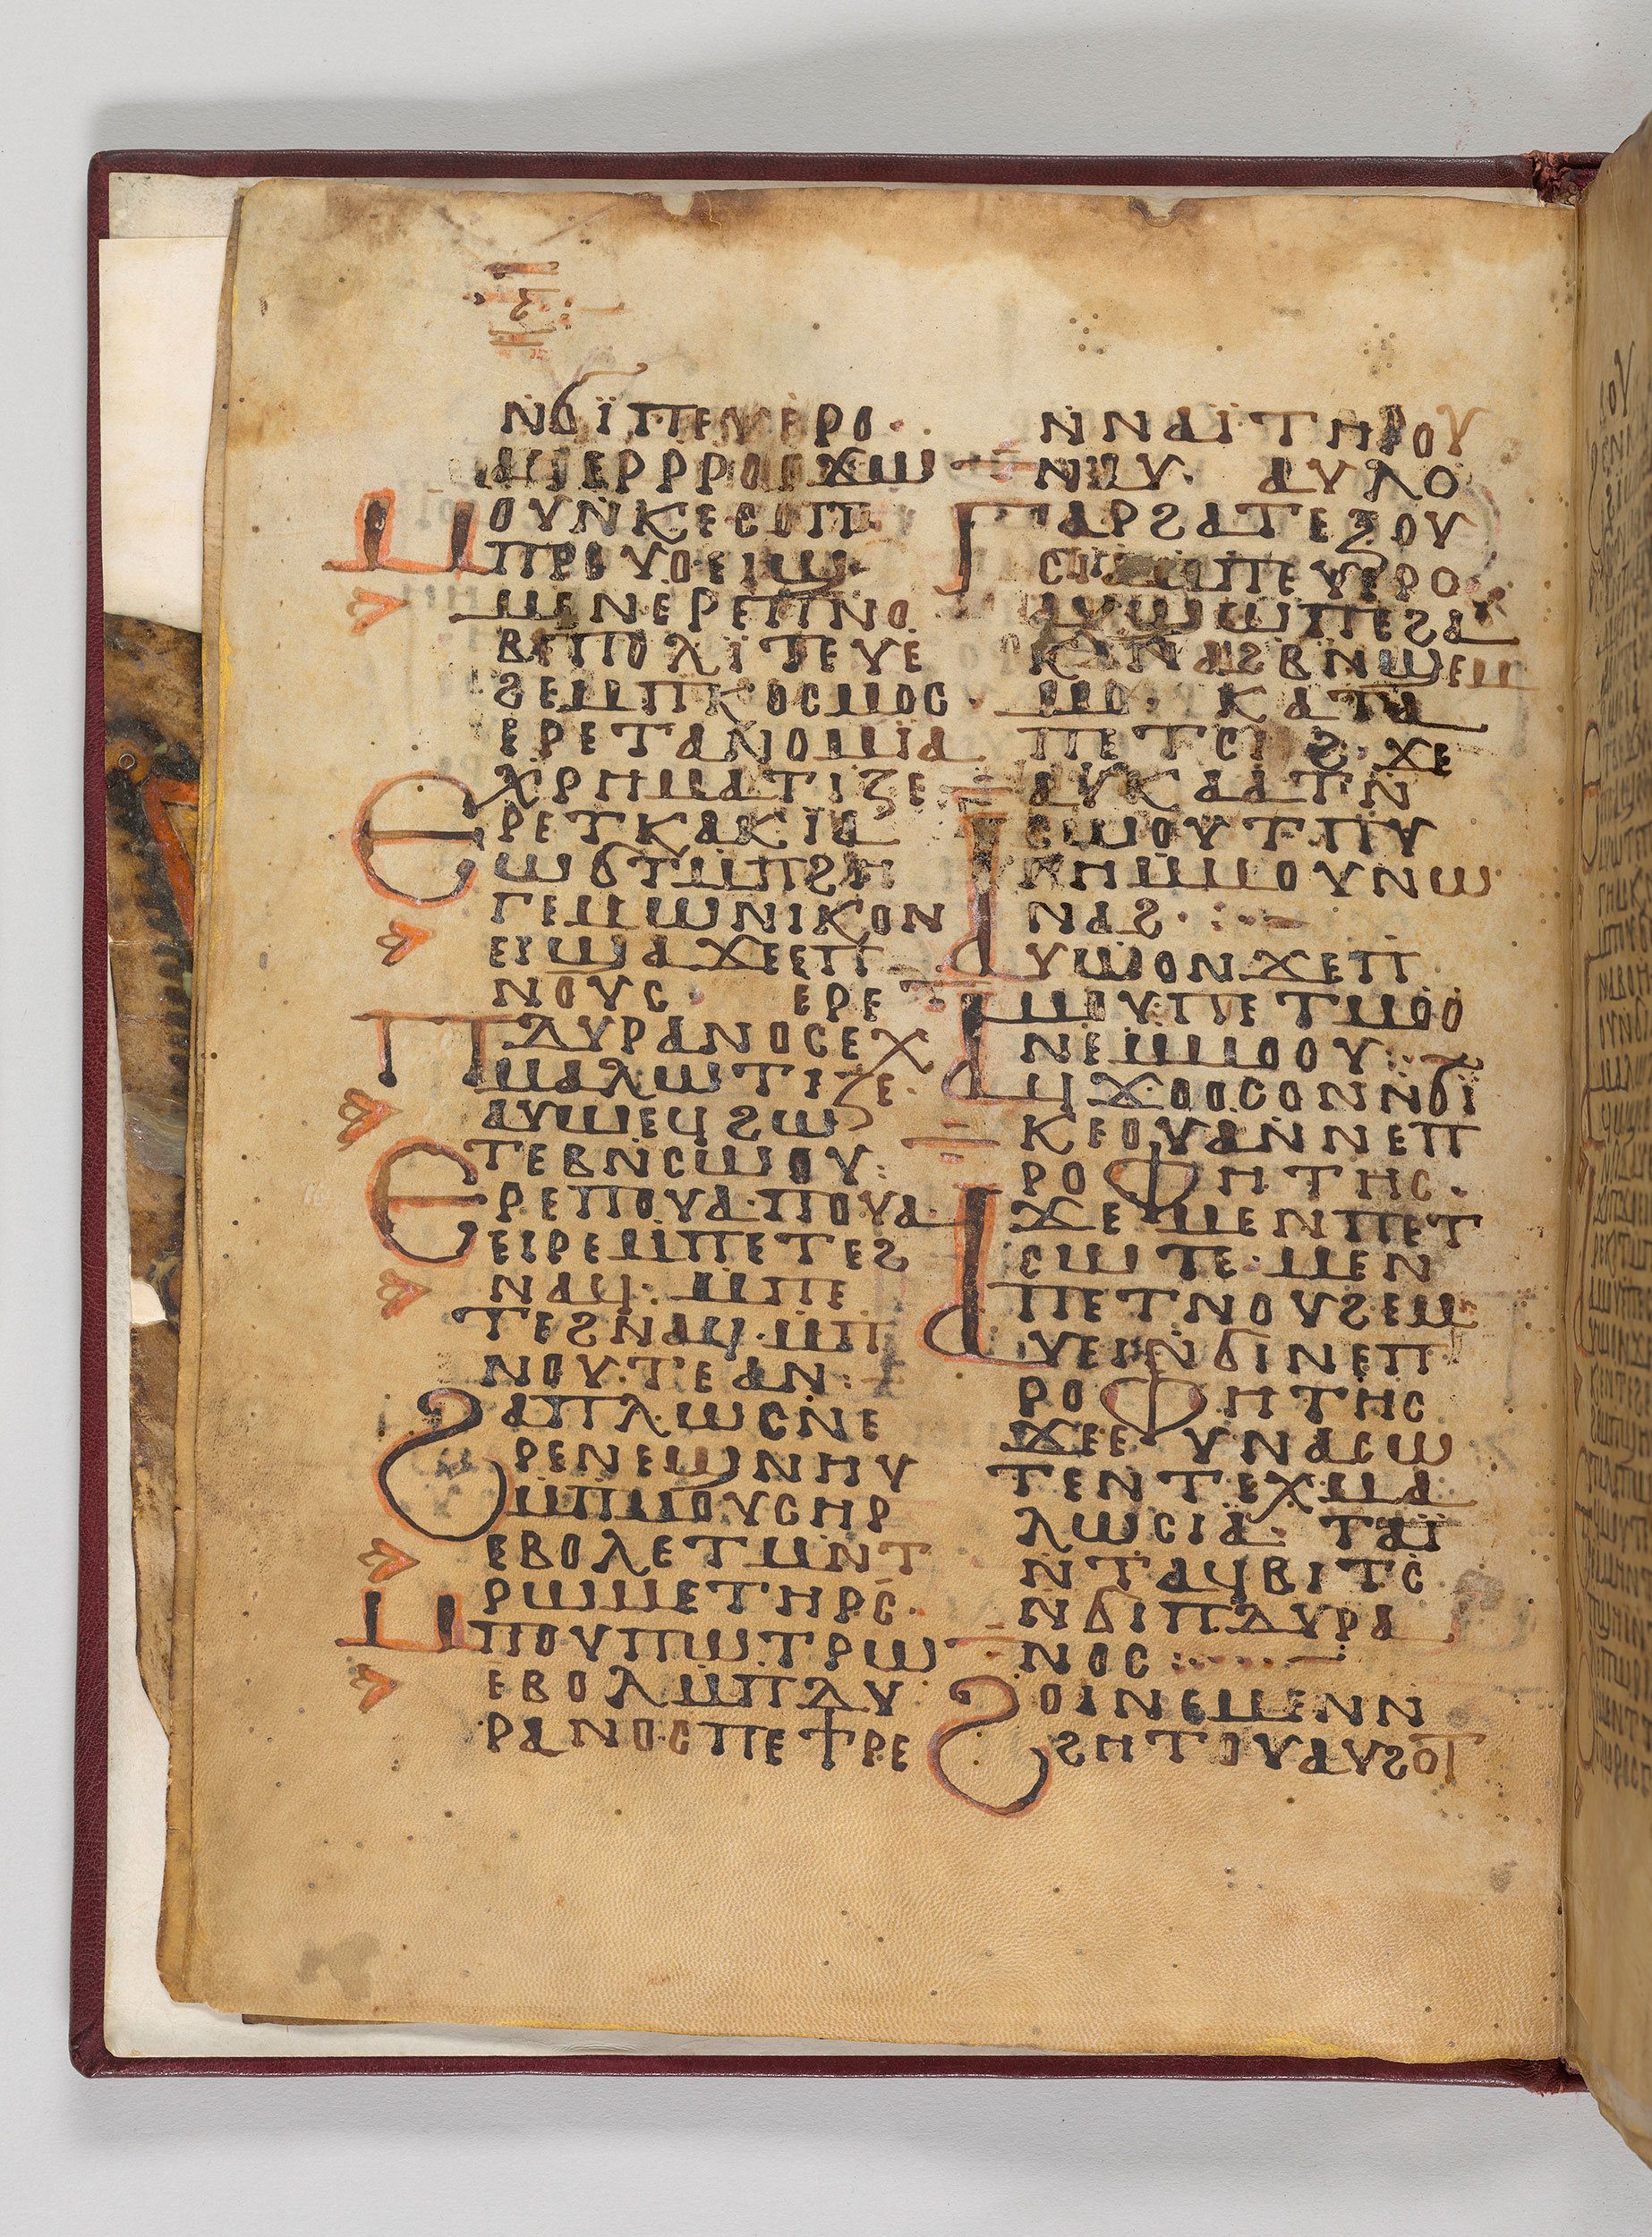 ⲛ̇ϭⲓ̈ⲡⲉⲩⲉⲣⲟ·
ⲁϥⲉⲣⲣⲣⲟⲉϫⲱ
ⲟⲩⲛ̇ⲕⲉⲥⲟⲡ·
ⲙⲡⲣⲟⲩⲟⲉⲓϣ·
ⲙⲉⲛⲉⲣⲉⲡⲛⲟ
ⲃⲉⲡⲟⲗⲓ̈ⲧⲉⲩⲉ
ϩⲉⲙⲡⲕⲟⲥⲙⲟⲥ·
ⲉⲣⲉⲧⲁⲛⲟⲙⲓ̈ⲁ
ⲭⲣⲏⲙⲁⲧⲓⲍⲉ
ⲉⲣⲉⲧⲕⲁⲕⲓⲁ
ⲱϭⲧⲙⲡϩⲏ
ⲅⲉⲙⲱⲛⲓⲕⲟⲛ
ⲉⲓϣⲁϫⲉⲉⲡ
ⲛⲟⲩⲥ· ⲉⲣⲉ
ⲡⲇⲩⲣⲁⲛⲟⲥⲉⲭ
ⲙⲁⲗⲱⲧⲓⲍⲉ·
ⲁⲩⲙⲉϥϩⲱ
ⲧⲉⲃⲛ̇ⲥⲱⲟⲩ:
ⲉⲣⲉⲡⲟⲩⲁ·ⲡⲟⲩⲁ
ⲉⲓⲣⲉⲙ̇ⲡⲉⲧⲉϩ
ⲛⲁϥ: ⲙⲡⲉ
ⲧⲉϩⲛⲁϥ·ⲙⲡ
ⲛⲟⲩⲧⲉⲁⲛ:
ϩⲁⲡⲗⲱⲥⲛ̇ⲉ
ⲣⲉⲛⲉϣⲛⲏⲩ
ⲙ̇ⲡ̇ⲙⲟⲩⲥⲏⲣ
ⲉⲃⲟⲗⲉⲧⲙⲛ̇ⲧ
ⲣⲱⲙⲉⲧⲏⲣⲥ̇·
ⲙⲡⲟⲩⲡⲱⲧⲣⲱ
ⲉⲃⲟⲗⲙ̇ⲡⲇⲩ
ⲣⲁⲛⲟⲥⲡⲉϯⲣⲉ
ⲛ̇ⲛⲁⲓ̈ⲧⲏⲣⲟⲩ
ⲁⲩⲗⲟ
ⲅⲁⲣϩⲁⲧⲉϩⲟⲩ
ⲁⲩϣⲱⲡⲉϩⲁ
ⲙⲟ· ⲕⲁⲧⲁ
ⲡⲉⲧⲥⲏϩ· ϫⲉ
ⲁⲩⲕⲁⲁⲧⲛ̇
ⲛⲁϩ·:
ⲁⲩⲱⲟⲛϫⲉⲡ
ⲙⲟⲩⲡⲉⲧⲙⲟⲟ
ⲛⲉⲙⲙⲟⲟⲩ:
ⲁϥϫⲟⲟⲥⲟⲛⲛ̇ϭⲓ̈
ⲕⲉⲟⲩⲁⲛ̇ⲛⲉⲡ
ⲣⲟⲫⲏⲧⲏⲥ·
ϫⲉⲙⲉⲛⲡⲉⲧ
ⲥⲱⲧⲉ·ⲙⲉⲛ
ⲡⲉⲧⲛⲟⲩϩⲉⲙ
ⲁⲩⲉⲓⲛ̇ϭⲓⲛⲉⲡ
ⲣⲟⲫⲏⲧⲏⲥ
ϫⲉⲉⲩⲛⲁⲥⲱ
ⲧⲉⲛⲧⲉⲭⲙⲁ
ⲗⲱⲥⲓⲁ· ⲧⲁⲓ̈
ⲛ̇ⲧⲁϥⲃⲓⲧⲥ̇
ⲛϭⲓⲡⲇⲩⲣⲁ
ⲛⲟⲥ:
ϩⲟⲓⲛⲉⲙⲉⲛⲛ
ϩⲏⲧⲟⲩⲁⲩϩⲟⲧ